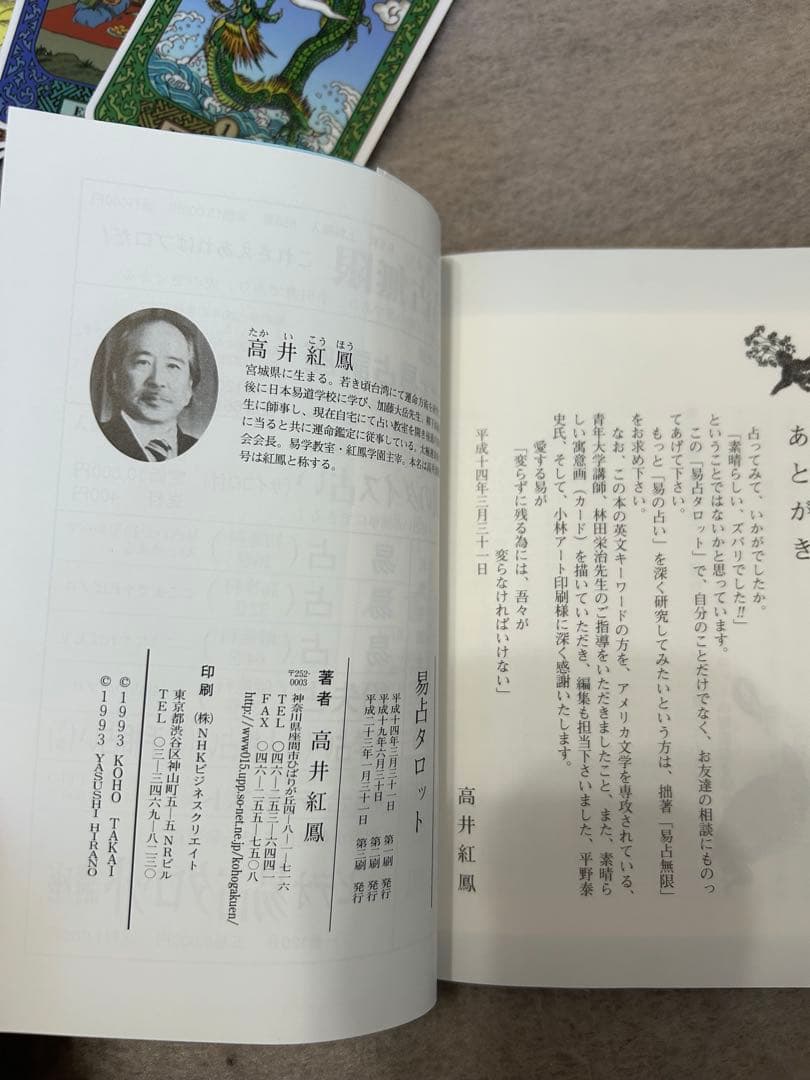 あとがき
占ってみて、いかがでしたか。
「素晴らしい、ズバリでした!!」
ということではないかと思っています。
この「易占タロット」で、自分のことだけでなく、お友達の相談にものっ
てあげて下さい。
もっと「易の占い」を深く研究してみたいという方は、拙著「易占無限」
をお求め下さい。
なお、この本の英文キーワードの方を、アメリカ文学を専攻されている、
青年大学講師、林田栄治先生のご指導をいただきましたこと、また、素晴ら
しい寓意画(カード)を描いていただき、編集も担当下さいました、平野泰
史氏、そして、小林アート印刷様に深く感謝いたします。
愛する易が
「変らずに残る為には、吾々が
変らなければいけない」
平成十四年三月三十一日
高井紅鳳
たかいこうほう
高井紅鳳
宮城県に生まる。若き頃台湾にて運命方術を
後に日本易道学校に学び、加藤大岳先生、
生に師事し、現在自宅にて占い教室を開き後進の
に当ると共に運命鑑定に従事している。
会会長。易学教室・紅鳳学園主宰。本名は高井
号は紅鳳と称する。
易占タロット
平成十四年三月三十一日 第一刷 発行
平成十九年六月三十日 第二刷 発行
平成二十三年一月三十一日 第三刷 発行
著者 高井紅鳳
〒252-0003 神奈川県座間市ひばりが丘四-八-一-七一六
TEL 〇四六-二五三-六四四一
FAX 〇四六-二五五-七五〇八
http://www015.upp.so-net.ne.jp/kohogakuen/
印刷 (株)NHKビジネスクリエイト
東京都渋谷区神山町五-五NRビル
TEL 〇三-三四六九-八二三〇
©1993 KOHO TAKAI
©1993 YASUSHI HIRANO